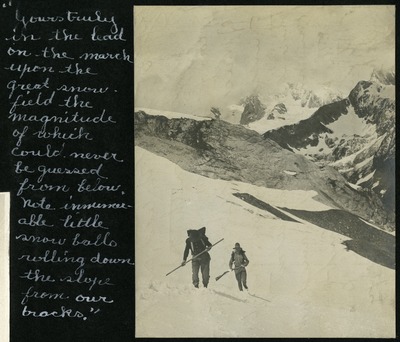 "Yours truly
in the lead
on the march
upon the
great snow-
field the
magnitude
of which
could never
be guessed
from below.
Note innumer-
able little
snow balls
rolling down
the slope
from our
tracks."